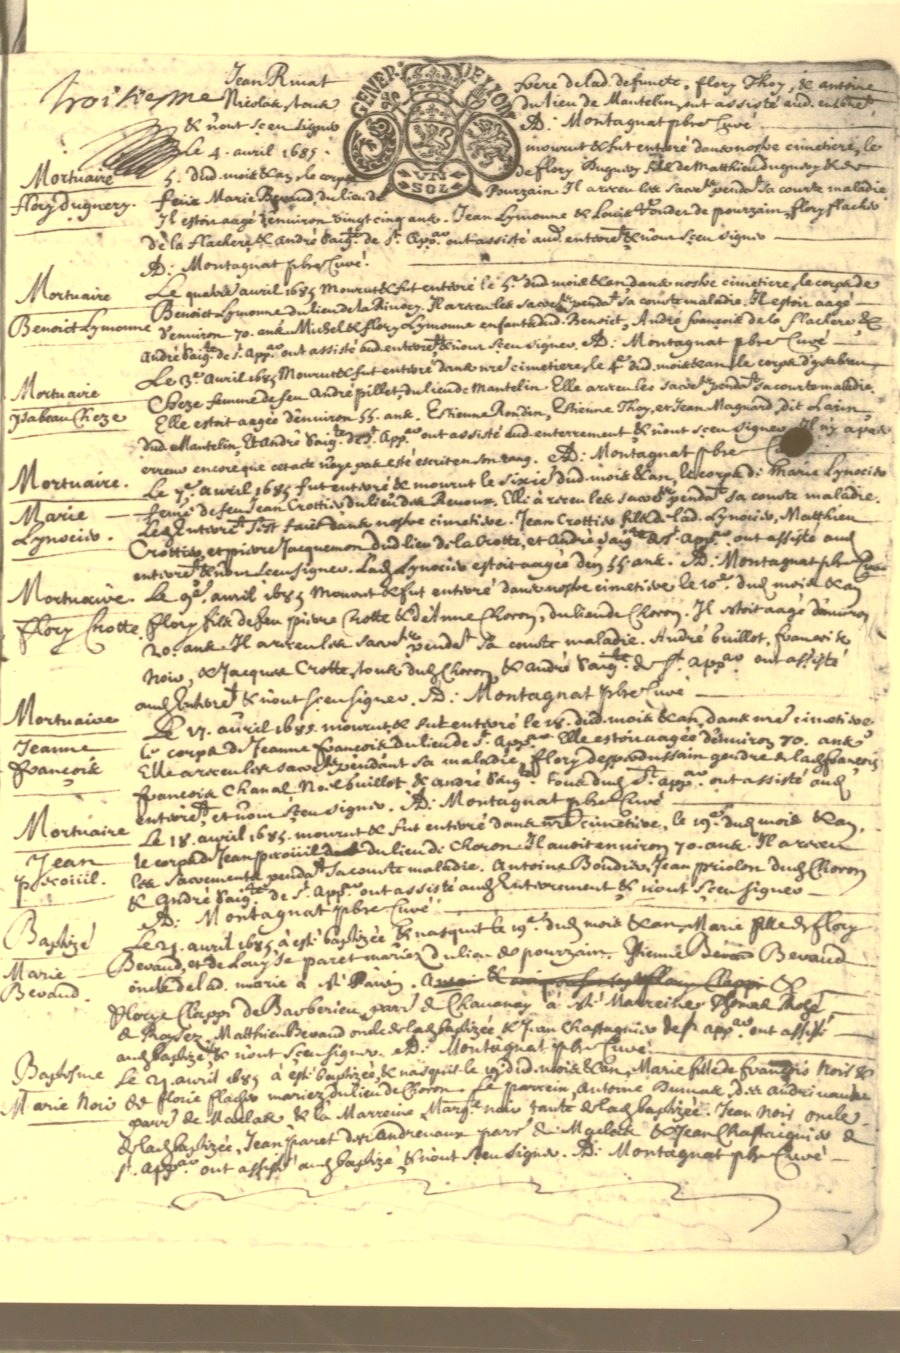 troisiesme
Jean Rivat frere de lad. defuncte, flory Thoy, & antoine
Nicolas, tous du lieu de Mantelin, ont assisté aud. enterre^t
& n'ont sceu signer A: Montagnat pbre Curé
GENER. DE LYON
UN SOL
Mortuaire
flory Duguery.
Le 4. avril 1685. mourut & fut enterré dans nostre cimetiere, le
5. dud. mois & an, le corps de flory Duguery fils de Matthieu Duguery & de
feüe Marie Bevaud, du lieu de Pourzain. Il a receu les sacre^ts pend^t sa courte maladie
Il estoit aagé d'environ vingt cinq ans. Jean Lymonne & Louis de pourzain, flory flachier
de la flachere, & André Vaig^te de S^t App^re ont assisté aud. enterre^t & n'ont sceu signer
A: Montagnat pbre Curé.
Mortuaire
Benoist Lymonne
Le quatre avril 1685 mourut & fut enterré le 5^e dud. mois & an dans nostre cimetiere, le corps de
Benoist Lymonne du lieu de la Rivory. Il a receu les sacre^ts pend^t sa courte maladie. Il estoit aagé
d'environ 70. ans. Michel & flory Lymonne enfants dud. Benoist, André francois de la flachere &
André Vaig^te de S^t App^re ont assisté aud. enterre^t & n'ont sceu signer. A: Montagnat pbre Curé
Mortuaire
ysabeau Cheze
Le 3^e avril 1685 Mourut & fut enterré dans n^re cimetiere, le 4^e dud. mois & an, le corps d'ysabeau
Cheze femme de feu André pillet, du lieu de Mantelin. Elle a receu les sacre^ts pend^t sa courte maladie.
Elle estoit aagée d'environ 55. ans. Estienne Rondin, Estienne Thoy, et Jean Magnard, dit Larin,
dud. Mantelin, & André Vaig^te de S^t App^re ont assisté aud. enterrement & n'ont sceu signer. Il n'y a pas
erreur encore que cet acte n'aye pas esté escrit en son rang. A: Montagnat pbre
Mortuaire.
Marie
Lynocier.
Le 7^e. avril 1685 fut enterré & mourut le sixie^e dud. mois & an, le corps de Marie Lynocier
feme de feu Jean Crottier du lieu des Revoux. Elle a receu les sacre^ts pend^t sa courte maladie.
Led. enterre^t s'est faict dans nostre cimetiere. Jean Crottier fils de lad. Lynocier, Matthieu
Crottier, et pierre Jacquemon dud. lieu de la Crotte, et André Vaig^te de S^t App^re ont assisté aud.
enterre^t & n'ont sceu signer. Lad. Lynocier estoit aagée d'en 55 ans. A: Montagnat pbre Curé
Mortuaire.
flory Crotte
Le 9^e. avril 1685 Mourut & fut enterré dans nostre cimetiere le 10^e. dud. mois & an
flory fils de feu pierre Crotte & d'Anne Choron, du lieu de Choron. Il estoit aagé d'environ
20. ans. Il a receu les sacre^ts pend^t sa courte maladie. André Guillot, francois
Noir, & Jacques Crotte, tous dud. Choron, & André Vaig^te de S^t App^re ont assisté
aud. Enterre^t & n'ont sceu signer. A: Montagnat pbre Curé
Mortuaire
Jeanne
françois
Le 17. avril 1685. mourut & fut enterré le 18. dud. mois & an, dans n^re cimetiere
le corps de Jeanne françois du lieu de S^t App^re. Elle estoit aagée d'environ 70. ans
Elle a receu les sacre^ts pendant sa maladie, flory gendre de lad. françois
françois Chanal Noel Guillot, & André Vaig^te. Tous dud. S^t App^re. ont assisté aud.
enterre^t, et n'ont sceu signer. A: Montagnat pbre Curé
Mortuaire
Jean
Le 18. avril 1685. mourut & fut enterré dans n^re cimetiere, le 19^e. dud. mois & an,
le corps de Jean du lieu de Choron. Il avoit environ 70. ans. Il a receu
les sacrements pend^t sa courte maladie. Antoine Bondier, Jean priolon dud. Choron
& André Vaig^te de S^t App^re ont assisté aud. Enterrement & n'ont sceu signer
A: Montagnat pbre Curé
Baptizé
Marie
Bevaud.
Le 21. avril 1685 à esté baptizée & nasquit le 19^e dud. mois & an, Marie fille de flory
Bevaud, et de Louyse paret mariez du lieu de pourzain. Bevaud
oncle de lad. marie a été Parrin.
Florie Clappi de Barberieu, parr^e de Chavanay à été Marreine
de Matthieu Bevaud oncle de lad. baptizée & Jean Chastagnier de S^t App^re ont assisté
aud. baptizé & n'ont sceu signer. A: Montagnat pbre Curé
Baptesme
Marie Noir
Le 21. avril 1685 à esté baptizée, & nasquit le 19^e dud. mois & an, Marie fille de françois Noir &
de florie flachier mariez du lieu de Choron. Le parrein, Antoine
parr^e de Maclas & la Marreine, Marg^te noir tante de lad. baptizée. Jean Noir oncle
de lad. baptizée, Jean paret parr^e de Maclas & Jean Chastagnier de
S^t. App^re ont assisté aud. baptizé & n'ont sceu signer. A: Montagnat pbre Curé